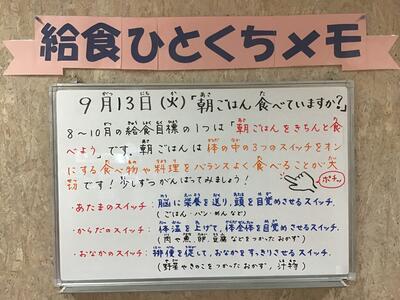 給食ひとくちメモ
9月13日(火)「朝ごはん食べていますか?」
8~10月の給食目標の1つは「朝ごはんをきちんと食
べよう」です。朝ごはんは体の中の3つのスイッチをオン
にする食べ物や料理をバランスよく食べることが大
切です!少しずつがんばってみましょう!
ポチッ
・あたまのスイッチ:脳に栄養を送り、頭を目覚めさせるスイッチ。
(ごはん・パン・めんなど)
・からだのスイッチ:体温を上げて、体全体を目覚めさせるスイッチ。
(肉や魚、卵、豆腐などをつかったおかず)
・おなかのスイッチ:排便を促して、おなかをすっきりさせるスイッチ。
(野菜やきのこをつかったおかず、汁物)